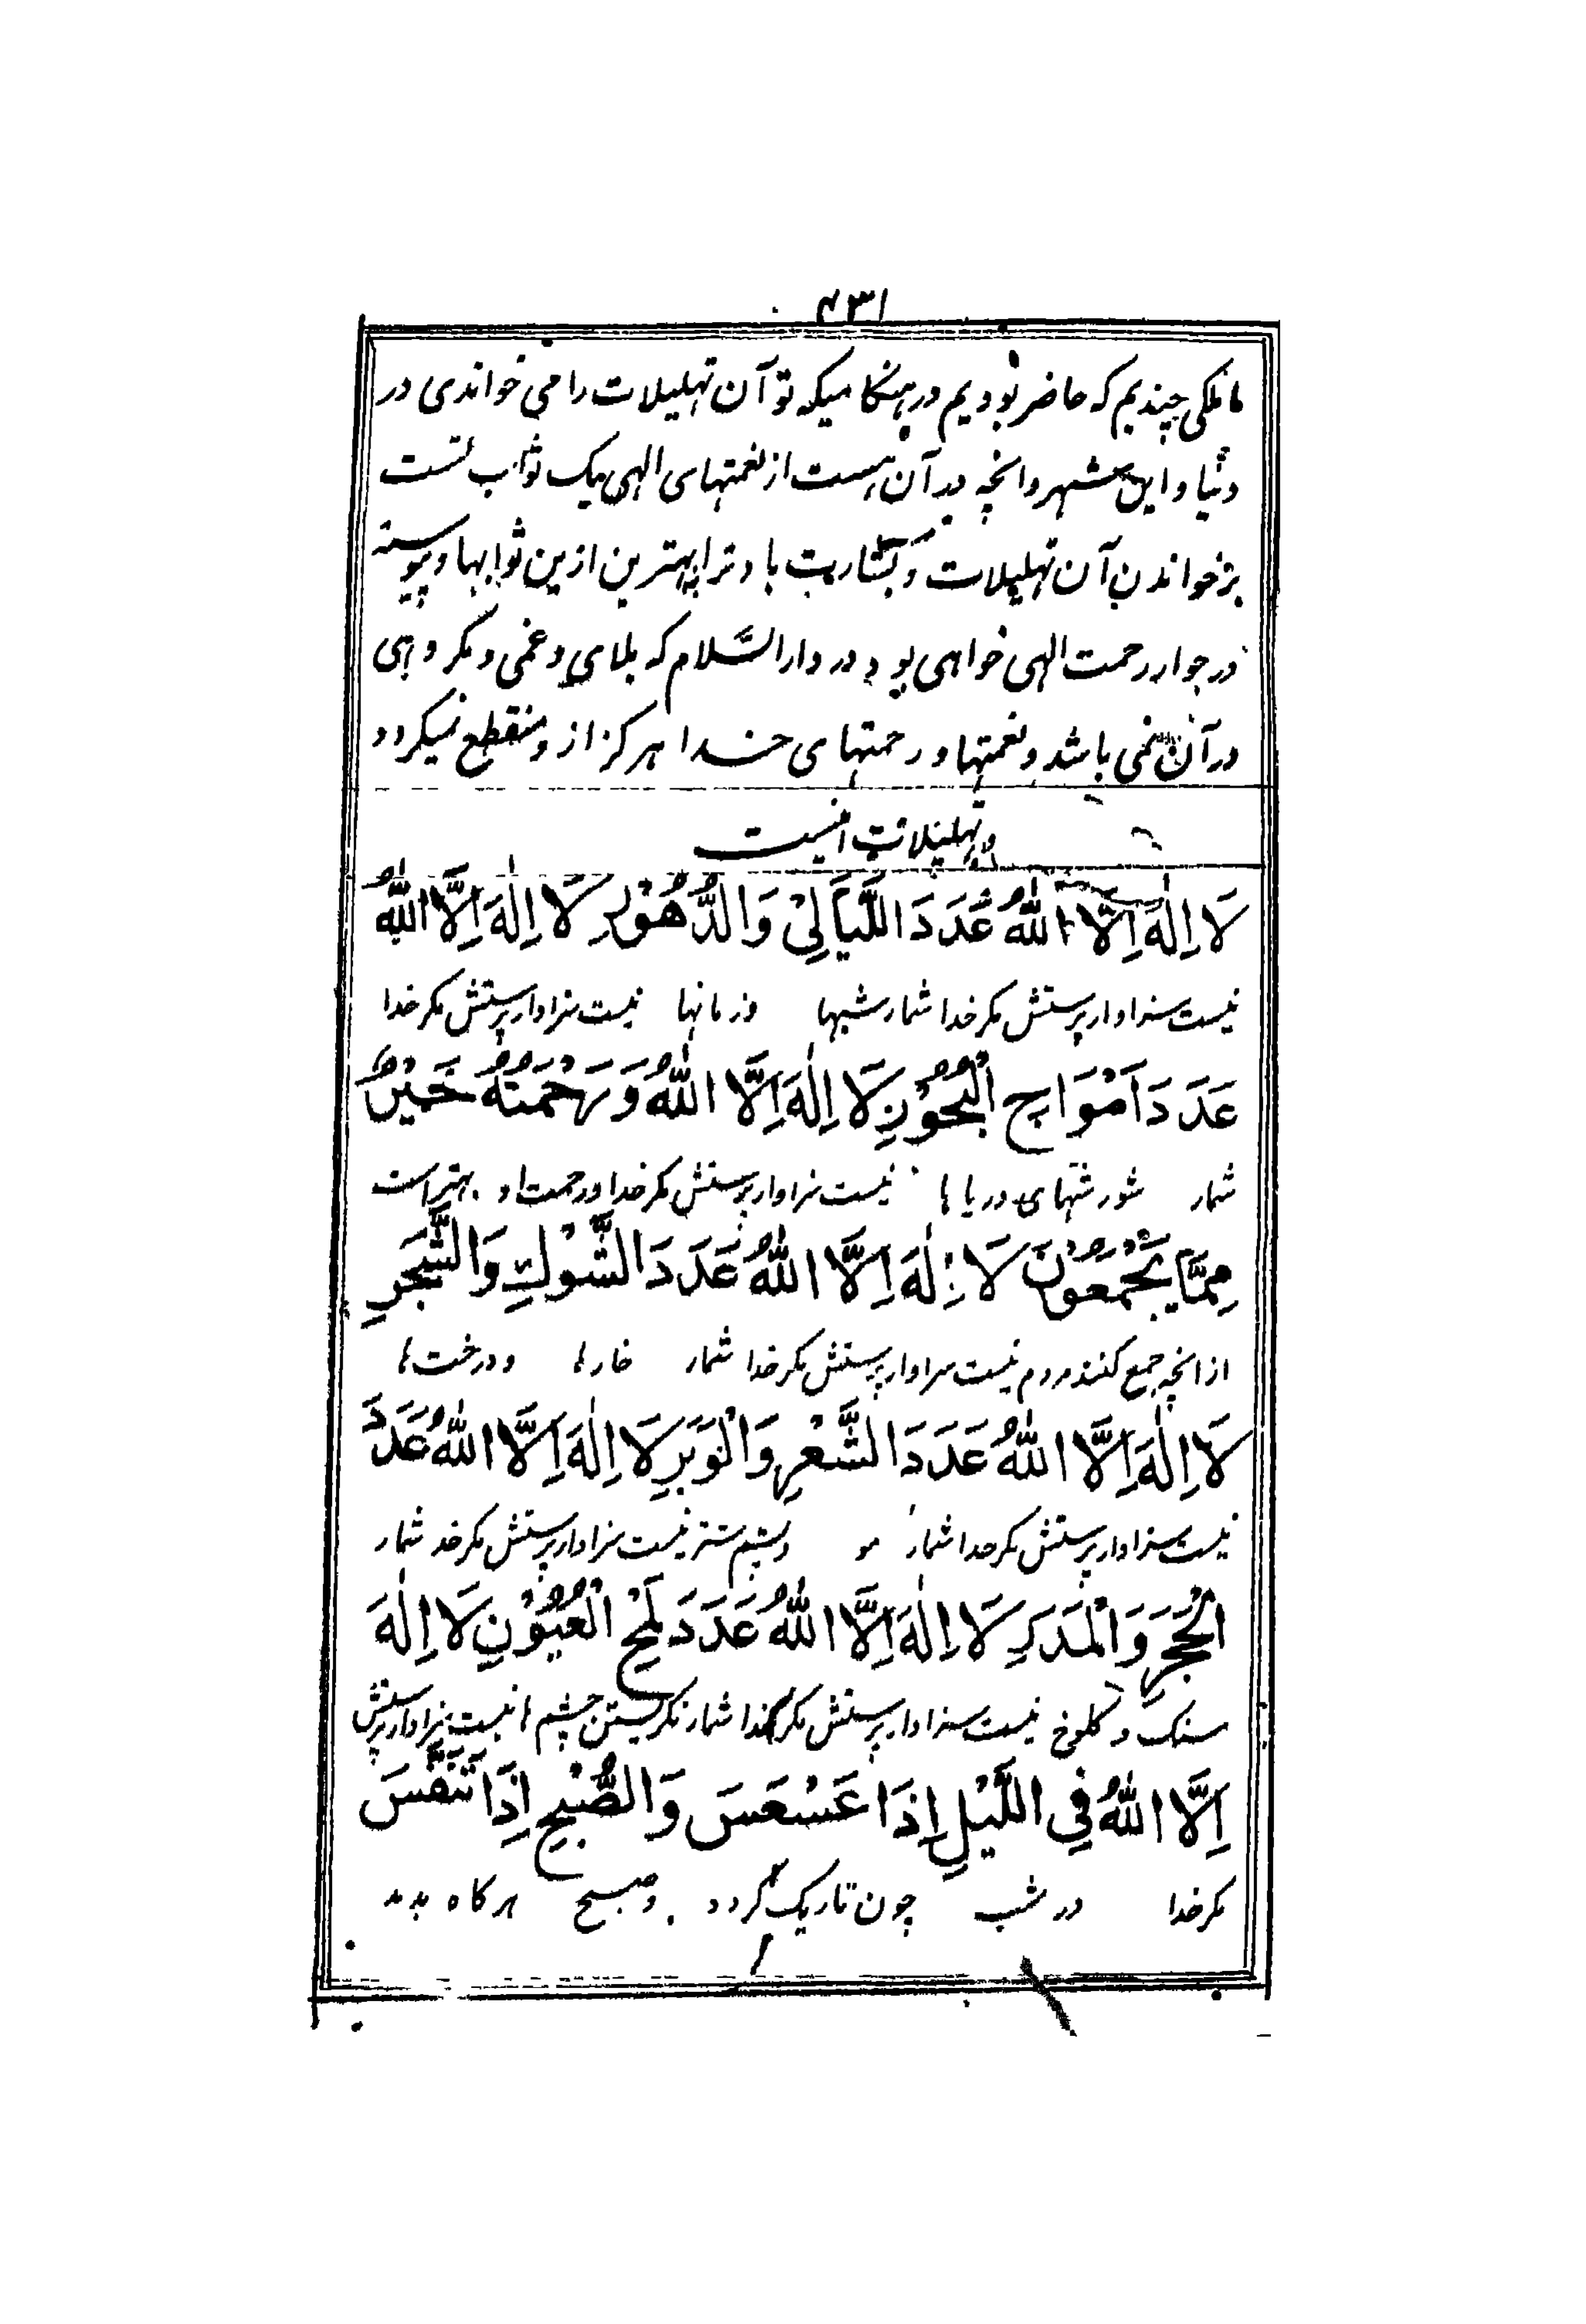 ۴۳۱
ما ملکی چندیم که حاضر بودیم در هنگامیکه تو آن تهلیلات را می خواندی در
دنیا و این شهر و انچه در آن هست از نعمتهای الهی یک ثواب تست
بر خواندن آن تهلیلات و بشارت باد ترا به بهترین ازین ثوابها و پیوسته
در جوار رحمت الهی خواهی بود در دار السَّلام که بلای و غمی و مکروهی
در آن نمی باشد و نعمتها و رحمتهای خدا هرکز از و منقطع نمیکردد
و تهلیلات اینست
لَا اِلٰهَ اِلَّا اللّٰهُ عَدَدَ اللَّیَالِیْ وَالدُّهُوْرِ لَا اِلٰهَ اِلَّا اللّٰهُ
نیست سزاوار پرستش مکر خدا شمار شبها و زمانها نیست سزاوار پرستش مکر خدا
عَدَدَ اَمْوَاجِ الْبُحُوْرِ لَا اِلٰهَ اِلَّا اللّٰهُ وَرَحْمَتُهُ خَیْرٌ
شمار شورشهای دریا ها نیست سزاوار پرستش مکر خدا و رحمت او بهتر است
مِمَّا یَجْمَعُوْنَ لَا اِلٰهَ اِلَّا اللّٰهُ عَدَدَ الشَّوْكِ وَالشَّجَرِ
از انچه جمع کنند مردم نیست سزاوار پرستش مکر خدا شمار خار ها و درخت ها
لَا اِلٰهَ اِلَّا اللّٰهُ عَدَدَ الشَّعْرِ وَالْوَبَرِ لَا اِلٰهَ اِلَّا اللّٰهُ عَدَدَ
نیست سزاوار پرستش مکر خدا شمار مو و پشم شتر نیست سزاوار پرستش مکر خدا شمار
الْحَجَرِ وَالْمَدَرِ لَا اِلٰهَ اِلَّا اللّٰهُ عَدَدَ لَمْحِ الْعُیُوْنِ لَا اِلٰهَ
سنک و کلوخ نیست سزاوار پرستش مکر خدا شمار نکریستن چشم ها نیست سزاوار پرستش
اِلَّا اللّٰهُ فِی اللَّیْلِ اِذَا عَسْعَسَ وَالصُّبْحِ اِذَا تَنَفَّسَ
مکر خدا در شب چون تاریک کردد و صبح هرکاه بدمد